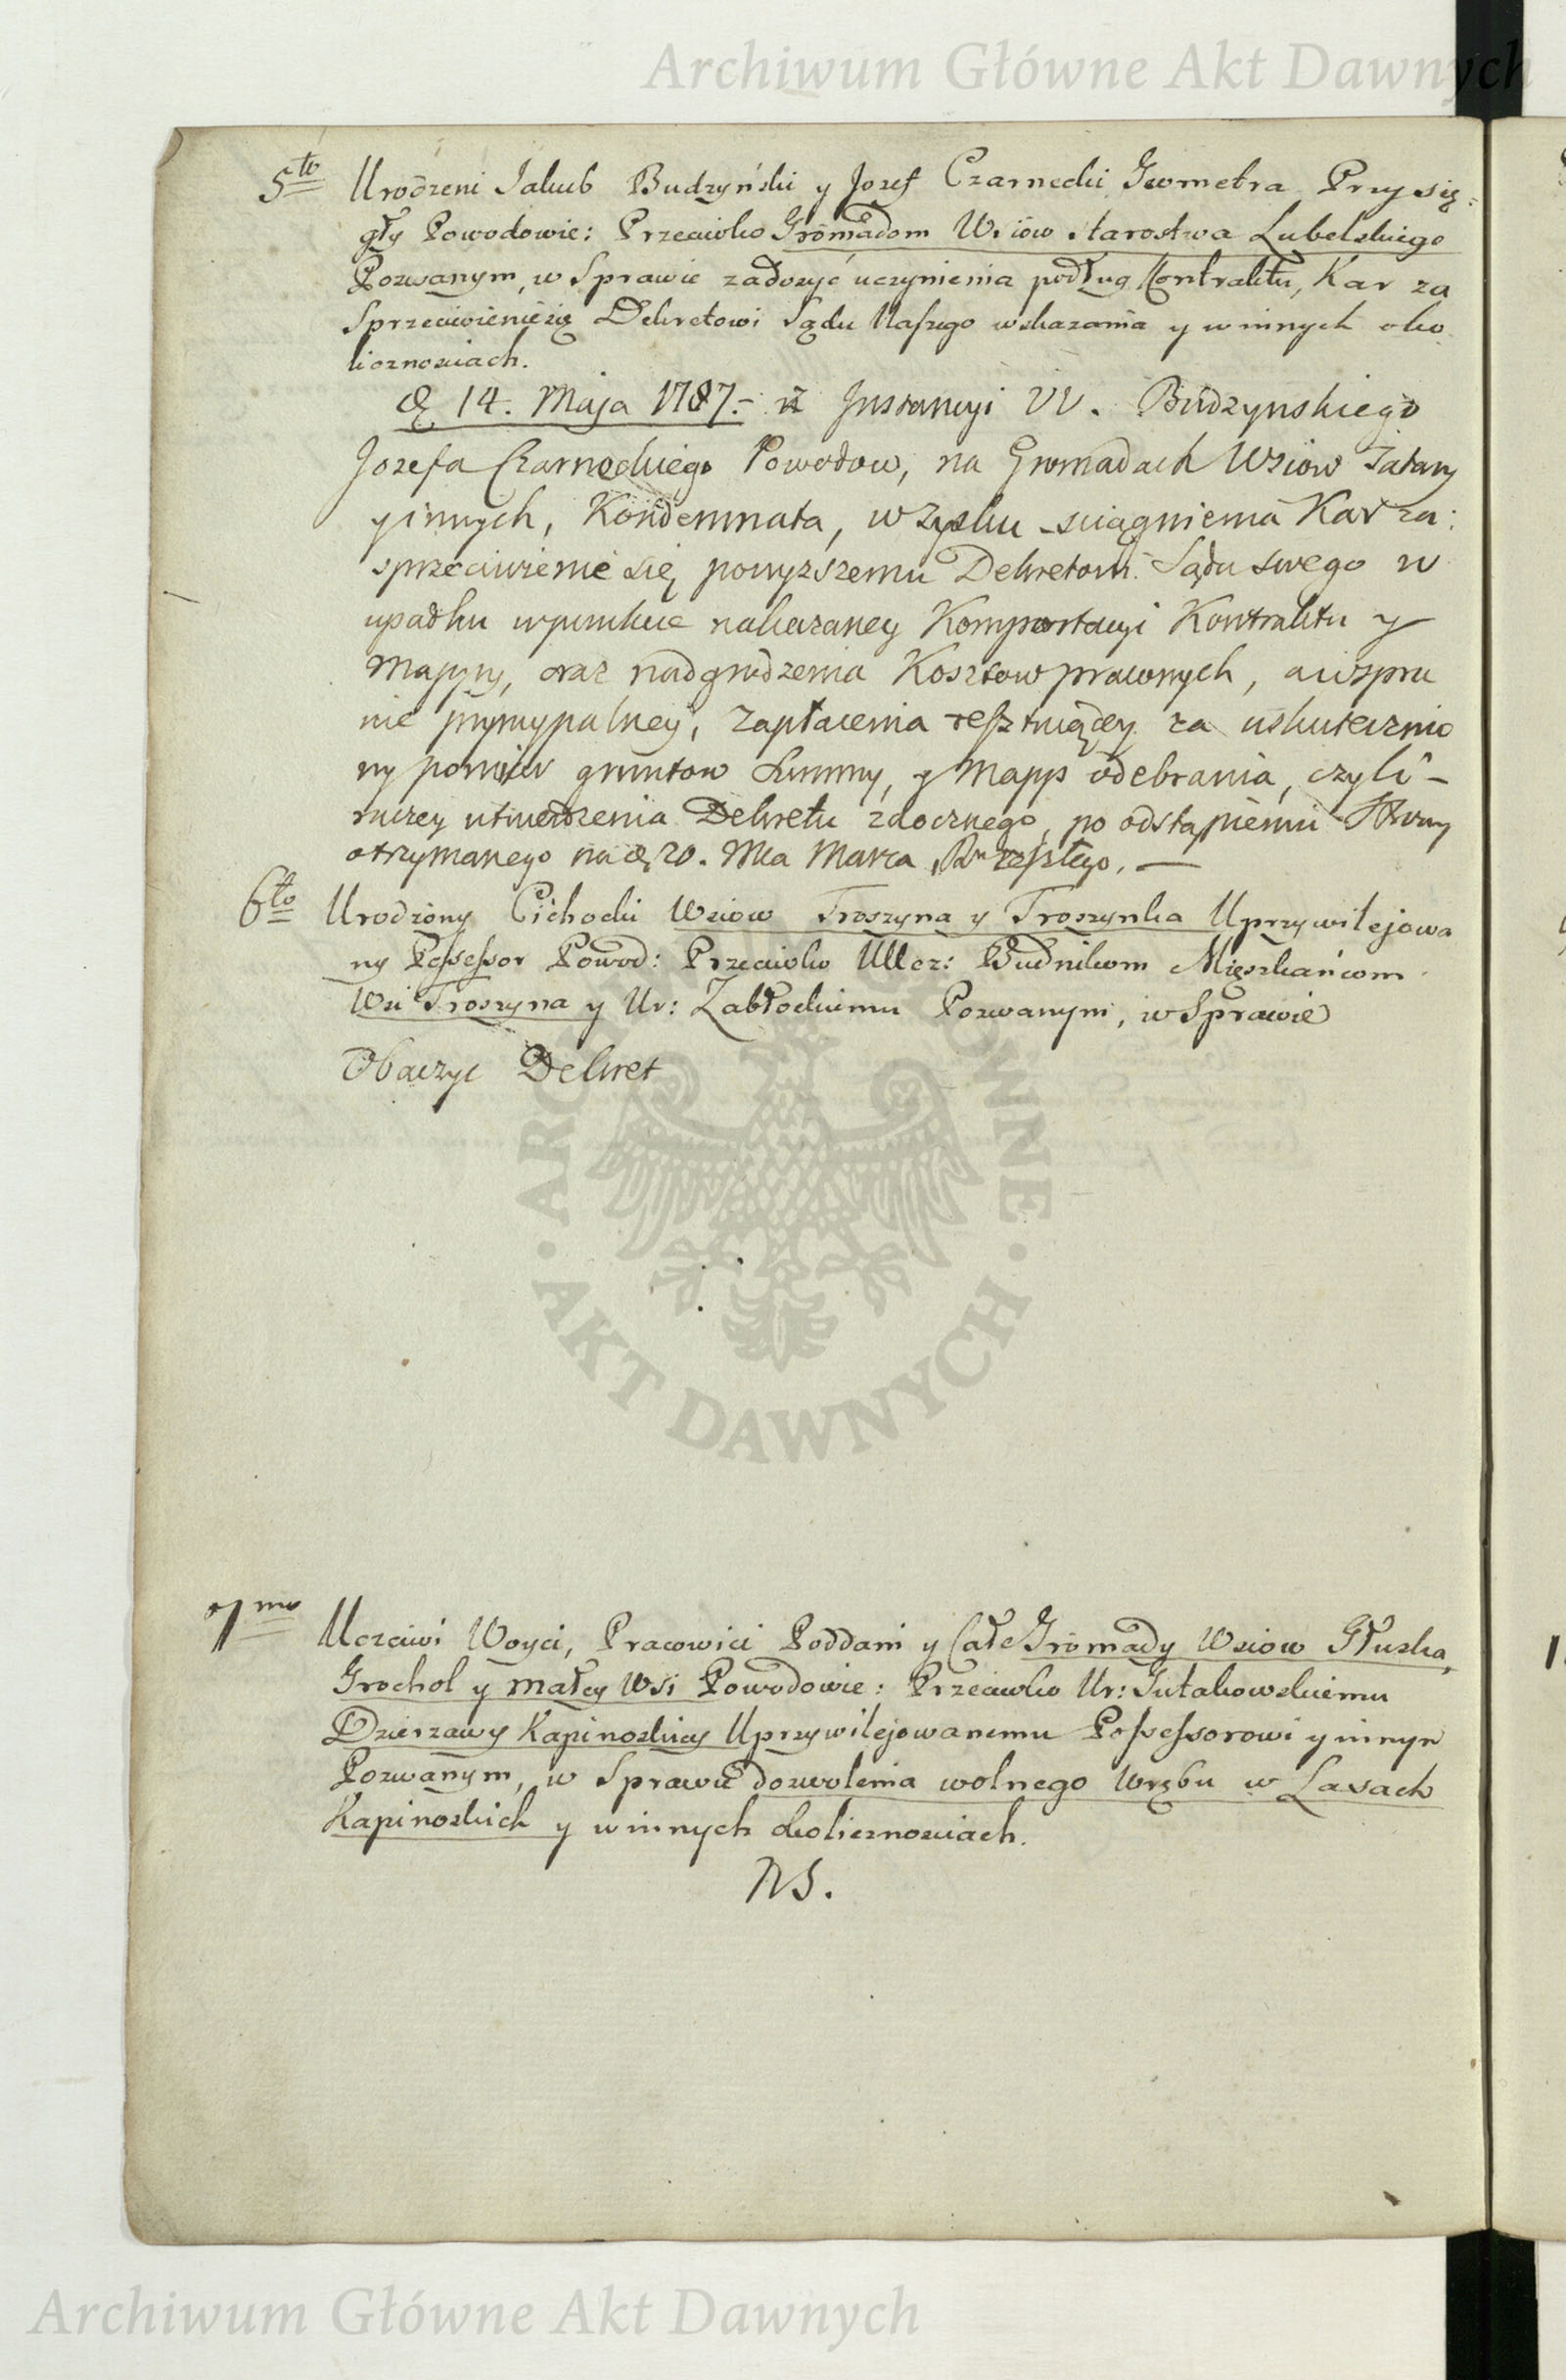 Archiwum Główne Akt Dawnych
5to Urodzeni Jakub Budzyński y Jozef Czarnecki Geometra Przysię:
gły Powodowie: Przeciwko Gromadom Wsiow Starostwa Lubelskiego
Pozwanym, w Sprawie zadosyć uczynienia podług Kontraktu, Kar za
Sprzeciwienie się Dekretowi Sądu Naszego wskazania y w innych oko
licznosciach.
D. 14. Maja 1787.- z Instancyi UU. Budzynskiego
Jozefa Czarneckiego Powodow, na Gromadach Wsiow Tatary
y innych, Kondemnata, w Zysku sciągnienia Kar za:
sprzeciwienie się powyzszemu Dekretowi Sądu swego w
upadku w punkcie nakazaney Komportacyi Kontraktu y
Mappy, oraz nadgrodzenia Kosztow prawnych, a w spra
wie pryncypalney, zapłacenia resztuiącey za uskutecznio
ny pomiar gruntow Summy, y Mapp odebrania, czyli -
raczey utwierdzenia Dekretu zaocznego, po odstąpieniu Strony
otrzymanego na d. 20. Mca Marca, Ru zeszłego. —
6to Urodzony Cichocki Wsiow Troszyna y Troszynka Uprzywilejowa
ny Possessor Powod: Przeciwko UUcz: Budnikom Mieszkańcom
Wsi Troszyna y Ur: Zabłockiemu Pozwanym, w Sprawie
Obaczyc Dekret
ARCHIWUM GŁÓWNE · AKT DAWNYCH ·
7mo Uczciwi Woyci, Pracowici Poddani y Całe Gromady Wsiow Głuska,
Grochol y Małey Wsi Powodowie: Przeciwko Ur: Gutakowskiemu
Dzierzawy Kapinoskiey Uprzywilejowanemu Possessorowi y innym
Pozwanym, w Sprawie dozwolenia wolnego Wrębu w Lasach
Kapinoskich y w innych okolicznosciach.
NS.
Archiwum Główne Akt Dawnych